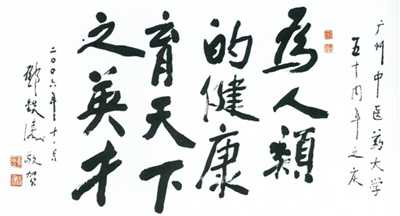 广州中医药大学
五十周年之庆
為人類
的健康
育天下
之英才
二〇〇六年十一月
鄧鉄涛敬贺